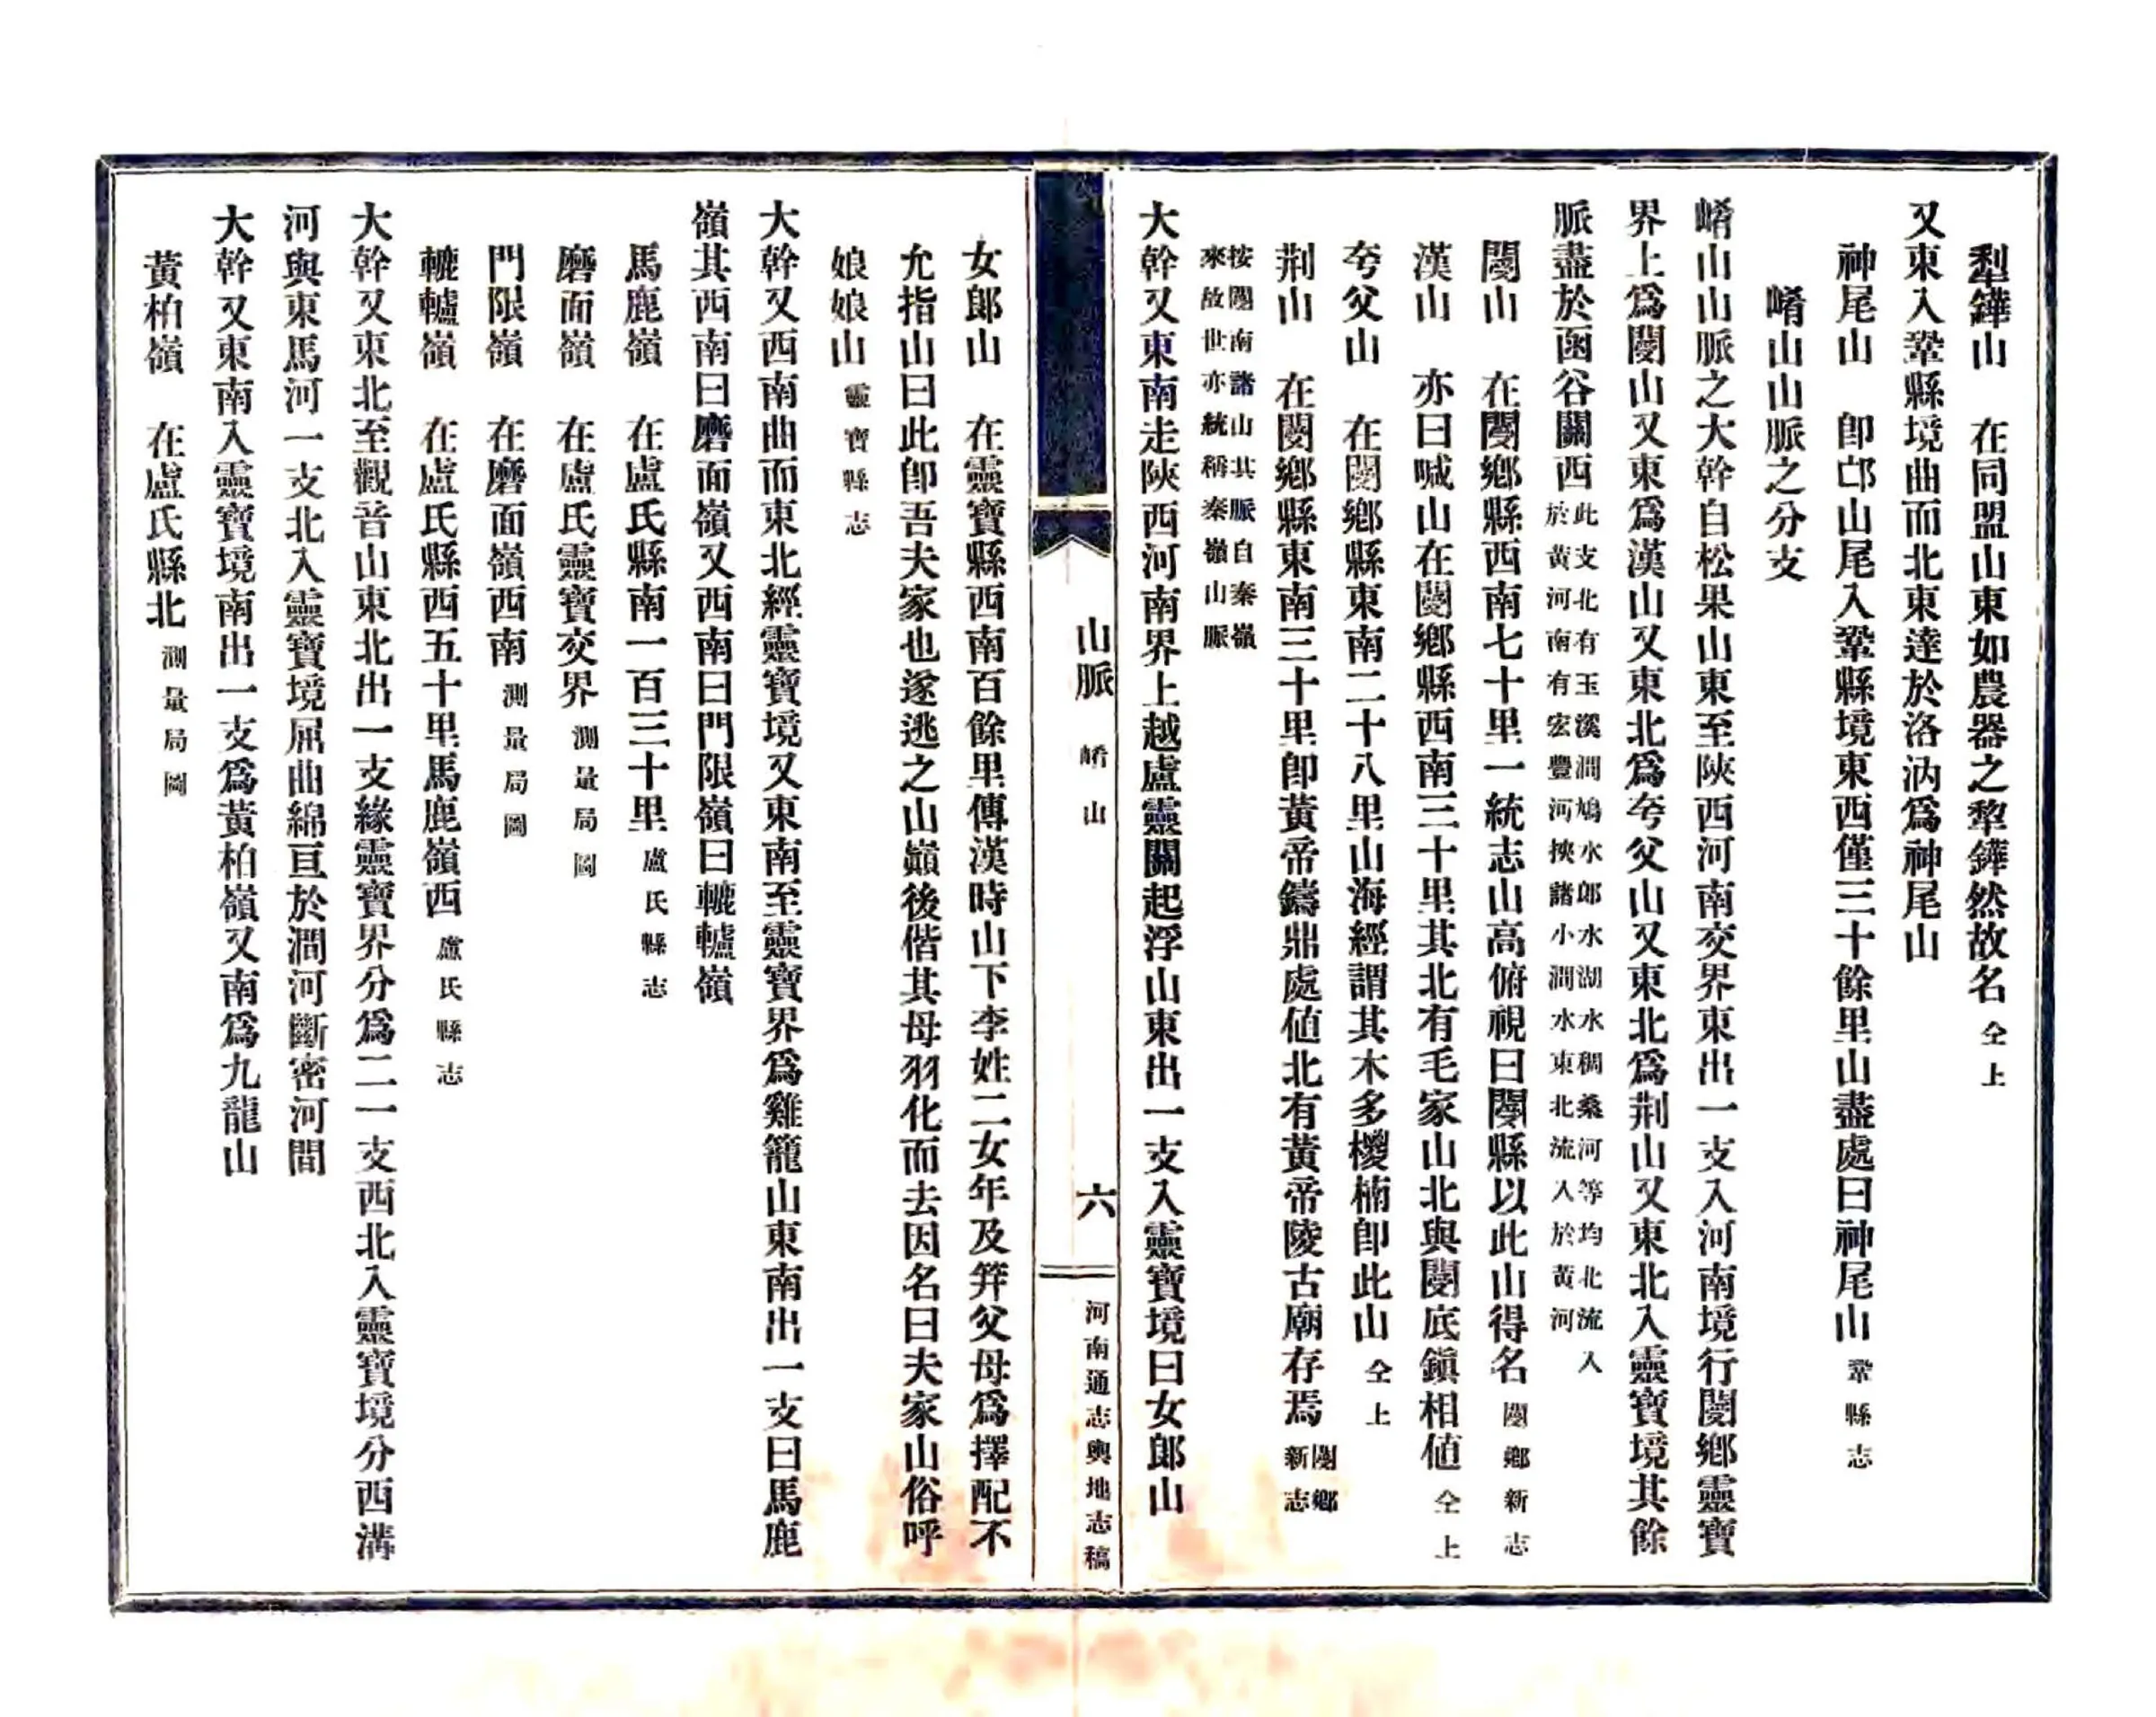 犁鏵山　在同盟山東如農器之犂鏵然故名仝上
又東入鞏縣境曲而北東達於洛汭爲神尾山
神尾山　卽邙山尾入鞏縣境東西僅三十餘里山盡處曰神尾山鞏縣志
崤山山脈之分支
崤山山脈之大幹自松果山東至陝西河南交界東出一支入河南境行閿鄉靈寶
界上爲閿山又東爲漢山又東北爲夸父山又東北爲荆山又東北入靈寶境其餘
脈盡於函谷關西此支北有玉溪澗鳩水郎水湖水稠桑河等均北流入
於黃河南有宏豐河挾諸小澗水東北流入於黃河
閿山　在閿鄉縣西南七十里一統志山高俯視曰閿縣以此山得名閿鄉新志
漢山　亦曰喊山在閿鄉縣西南三十里其北有毛家山北與閿底鎭相値仝上
夸父山　在閿鄉縣東南二十八里山海經謂其木多㯶楠卽此山仝上
荆山　在閿鄉縣東南三十里卽黃帝鑄鼎處値北有黃帝陵古廟存焉閿鄉
新志
按閿南諸山其脈自秦嶺
來故世亦統稱秦嶺山脈
大幹又東南走陝西河南界上越盧靈關起浮山東出一支入靈寶境曰女郎山
山脈　崤山
六
河南通志輿地志稿
女郎山　在靈寶縣西南百餘里傳漢時山下李姓二女年及笄父母爲擇配不
允指山曰此卽吾夫家也遂逃之山巔後偕其母羽化而去因名曰夫家山俗呼
娘娘山靈寶縣志
大幹又西南曲而東北經靈寶境又東南至靈寶界爲雞籠山東南出一支曰馬鹿
嶺其西南曰磨面嶺又西南曰門限嶺曰轆轤嶺
馬鹿嶺　在盧氏縣南一百三十里盧氏縣志
磨面嶺　在盧氏靈寶交界測量局圖
門限嶺　在磨面嶺西南測量局圖
轆轤嶺　在盧氏縣西五十里馬鹿嶺西盧氏縣志
大幹又東北至觀音山東北出一支緣靈寶界分爲二一支西北入靈寶境分西溝
河與東馬河一支北入靈寶境屈曲綿亘於澗河斷密河間
大幹又東南入靈寶境南出一支爲黃柏嶺又南爲九龍山
黃柏嶺　在盧氏縣北測量局圖